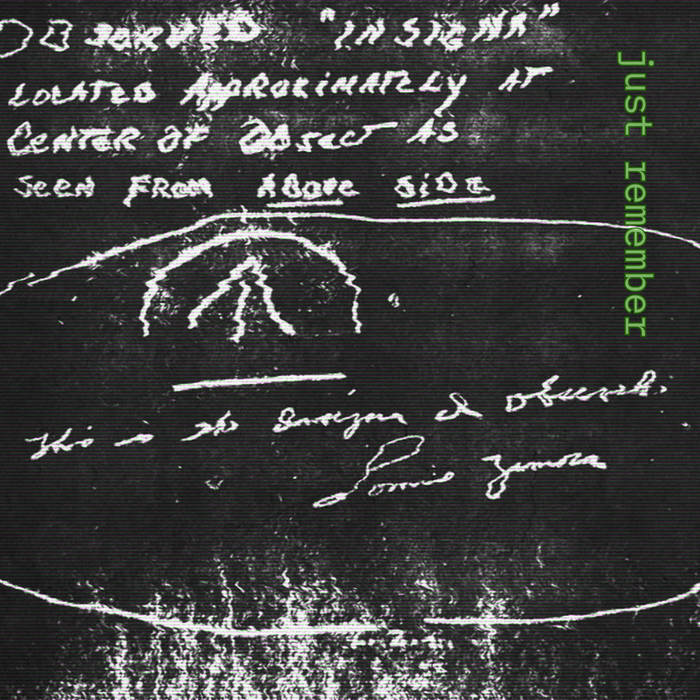 OBSERVED "INSIGNIA"
LOCATED APPROXIMATELY AT
CENTER OF OBJECT AS
SEEN FROM ABOVE SIDE
This is the insigna I observed.
Lonnie Zamora
L.Z.
just remember